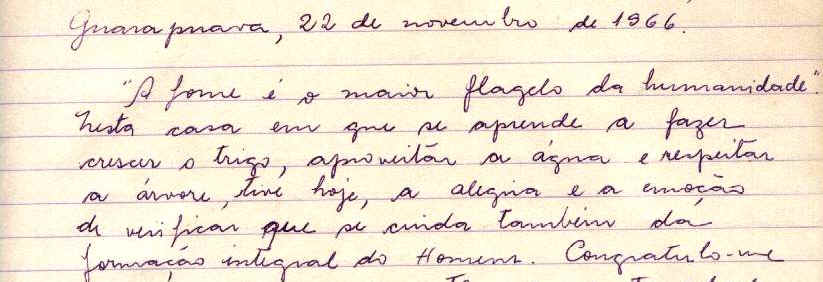 Guarapuava, 22 de novembro de 1966.
"A fome é o maior flagelo da humanidade".
Nesta casa em que se aprende a fazer
crescer o trigo, aproveitar a água e respeitar
a árvore, tive hoje, a alegria e a emoção
de verificar que se cuida também da
formação integral do Homem. Congratulo-me